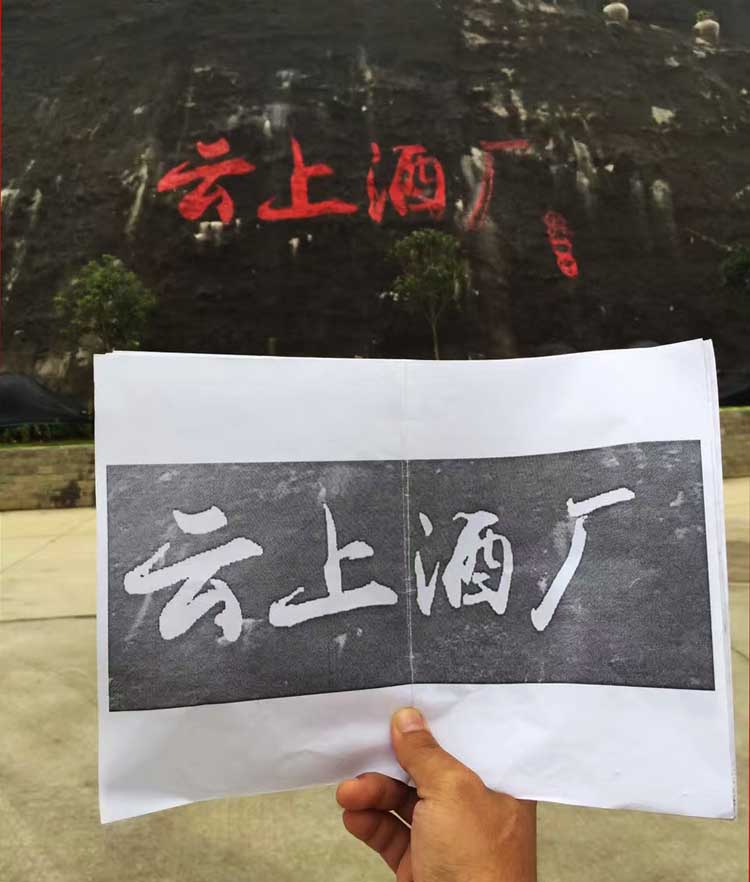 云上酒厂
云上酒厂